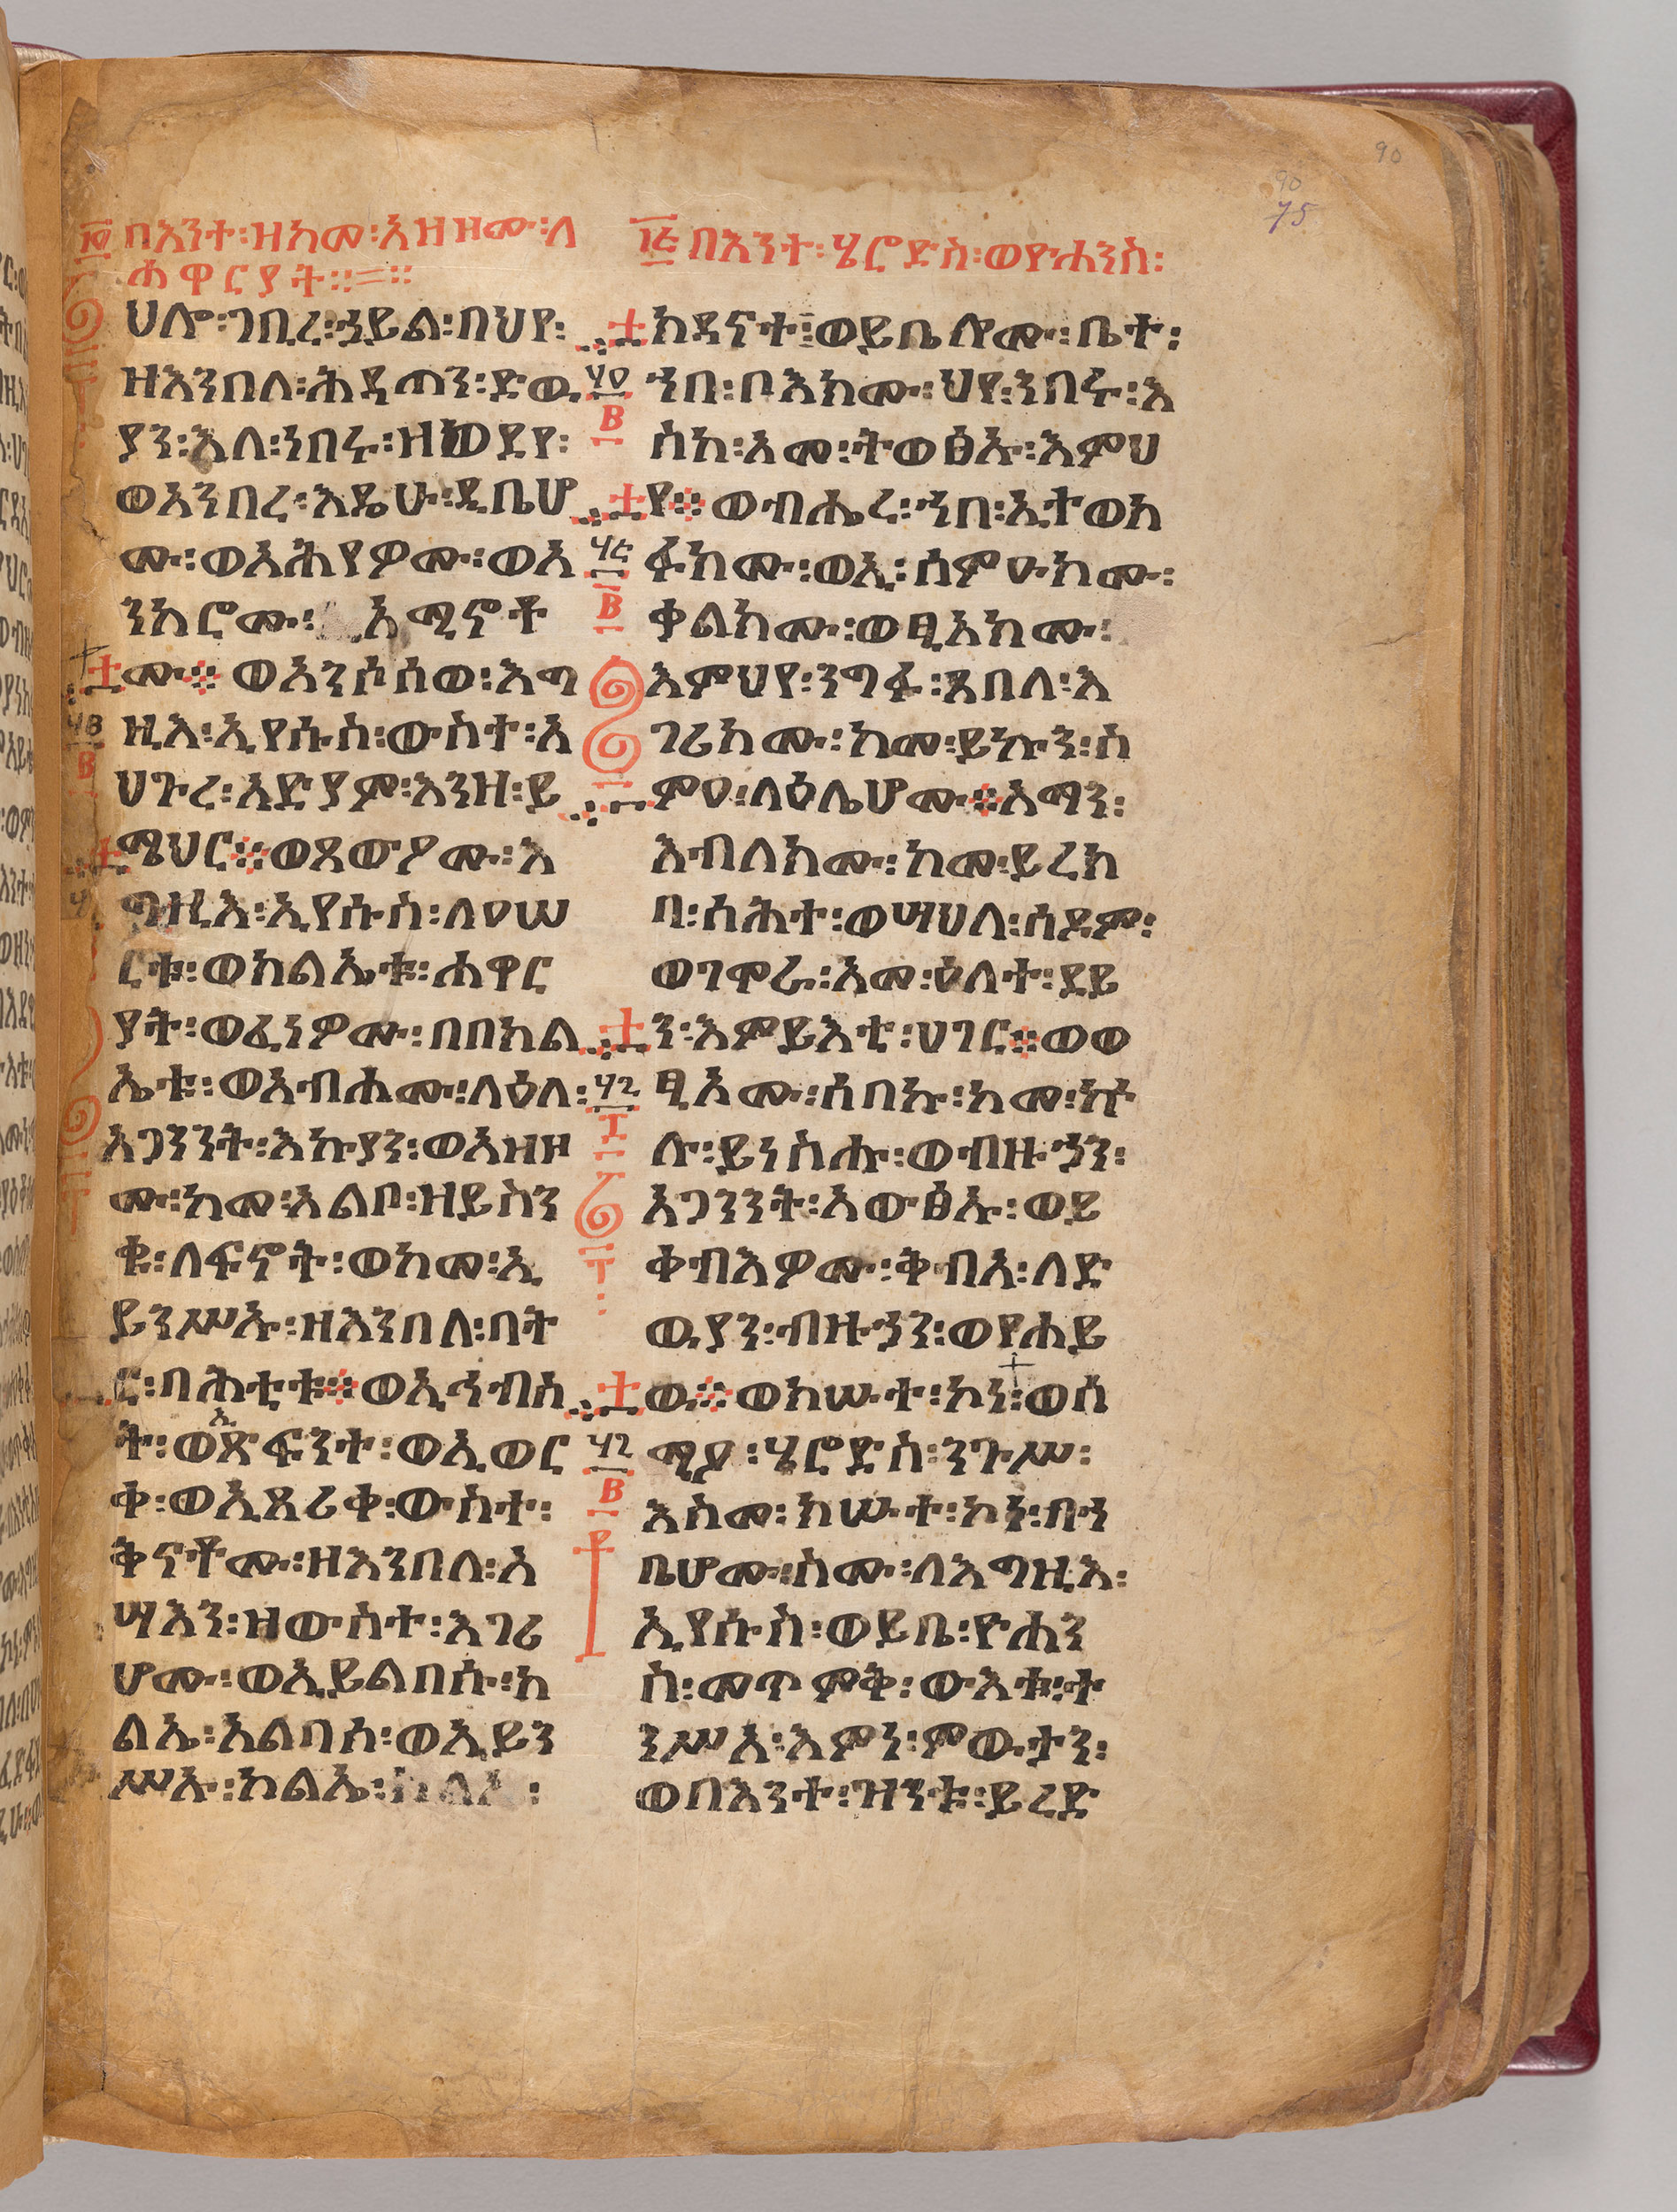 ፲፬ በእንተ፡ዘከመ፡አዝዘሙ፡ለ
ሐዋርያት፡፡=፡፡
ሀሎ፡ገቢረ፡ኃይል፡በህየ፡
ዘእንበለ፡ሕዳጣን፡ድዉ
ያን፡እለ፡ነበሩ፡ህየ፡
ወአንበረ፡እዴሁ፡ዲቤሆ
ሙ፡ወአሕየዎሙ፡ወአ
ንከሮሙ፡ኢአሚኖቶ
ሙ፨ወአንሶሰወ፡እግ
ዚእ፡ኢየሱስ፡ውስተ፡አ
ህጉረ፡አድያም፡እንዘ፡ይ
ሜህር፨ወጸውዖሙ፡እ
ግዚእ፡ኢየሱስ፡ለዐሠ
ርቱ፡ወክልኤቱ፡ሐዋር
ያት፡ወፈነዎሙ፡በበክል
ኤቱ፡ወአብሐሙ፡ላዕለ፡
አጋንንት፡እኩያን፡ወአዘዞ
ሙ፡ከመ፡አልቦ፡ዘይስን
ቁ፡ለፍኖት፡ወከመ፡ኢ
ይንሥኡ፡ዘእንበለ፡በት
ር፡ባሕቲቱ፨ወኢኅብስ
ት፡ወኢጽፍንት፡ወኢወር
ቀ፡ወኢጸሪቀ፡ውስተ፡
ቅናቶሙ፡ዘእንበለ፡አ
ሣእን፡ዝውስተ፡እገሪ
ሆሙ፡ወኢይልበሱ፡ክ
ልኤ፡አልባሰ፡ወኢይን
ሥኡ፡ክልኤ፡
፲፭ በእንተ፡ሄሮድስ፡ወዮሐንስ፡
ክዳናተ፡ወይቤሎሙ፡ቤተ፡
ኀበ፡ቦእክሙ፡ህየ፡ንበሩ፡እ
ስከ፡አመ፡ትወፅኡ፡እምህ
የ፨ወብሔረ፡ኀበ፡ኢተወክ
ፉክሙ፡ወኢ፡ሰምዑክሙ፡
ቃልክሙ፡ወፂአክሙ፡
እምህየ፡ንግፉ፡ጸበለ፡እ
ገሪክሙ፡ከመ፡ይኩን፡ስ
ምዐ፡ላዕሌሆሙ፨አማን፡
እብለክሙ፡ከመ፡ይረክ
ባ፡ሰሕተ፡ወሣህለ፡ሰዶም፡
ወገሞራ፡አመ፡ዕለተ፡ደይ
ን፡እምይእቲ፡ሀገር፨ወወ
ፂኦሙ፡ሰበኩ፡ከመ፡ኵ
ሉ፡ይነስሑ፡ወብዙኃን፡
አጋንንት፡አውፅኡ፡ወይ
ቀብእዎሙ፡ቅብአ፡ለድ
ዉያን፡ብዙኃን፡ወየሐይ
ዉ፨ወክሡተ፡ኮነ፡ወሰ
ሚዖ፡ሄሮድስ፡ንጉሥ፡
እስመ፡ክሡተ፡ኮነ፡በኀ
ቤሆሙ፡ስሙ፡ለእግዚእ፡
ኢየሱስ፡ወይቤ፡ዮሐን
ስ፡መጥምቅ፡ውእቱ፡ተ
ንሥአ፡እምነ፡ምዉታን፡
ወበእንተ፡ዝንቱ፡ይረድ